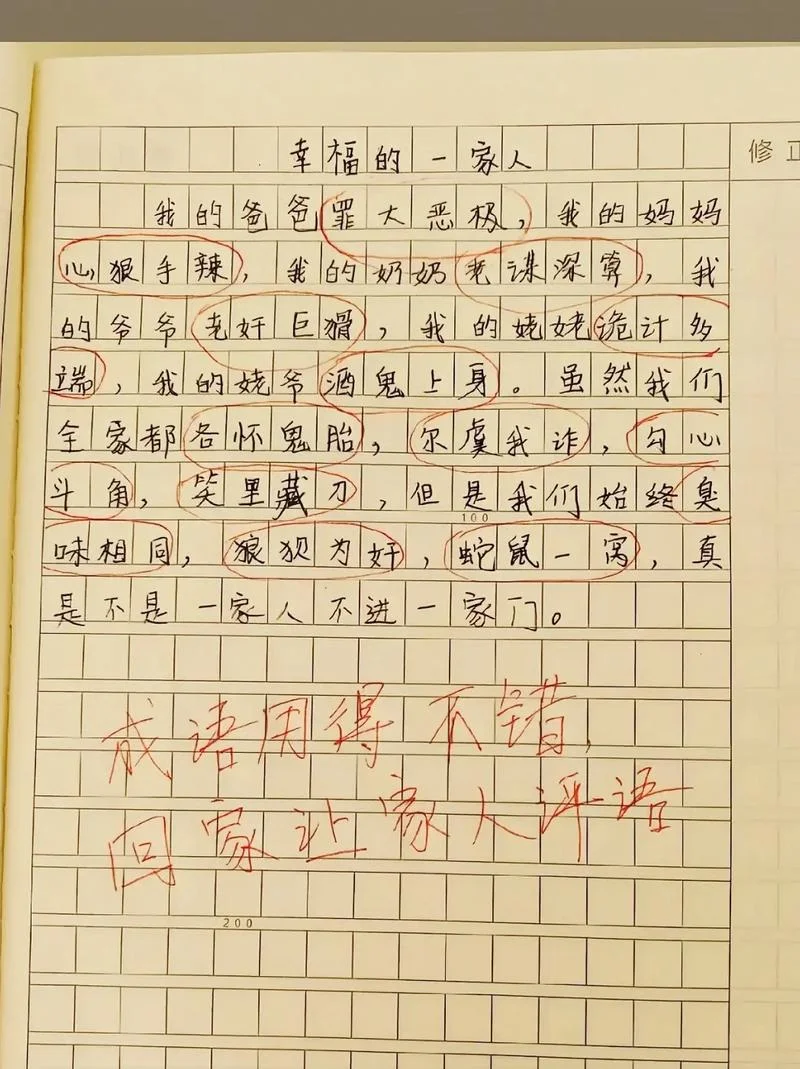 修正
幸福的一家人
我的爸爸罪大恶极，我的妈妈
心狠手辣，我的奶奶老谋深算，我
的爷爷老奸巨猾，我的姥姥诡计多
端，我的姥爷酒鬼上身。虽然我们
全家都各怀鬼胎，尔虞我诈，勾心
斗角，笑里藏刀，但是我们始终臭
100
味相同，狼狈为奸，蛇鼠一窝，真
是不是一家人不进一家门。
成语用得不错，
回家让家人评语
200